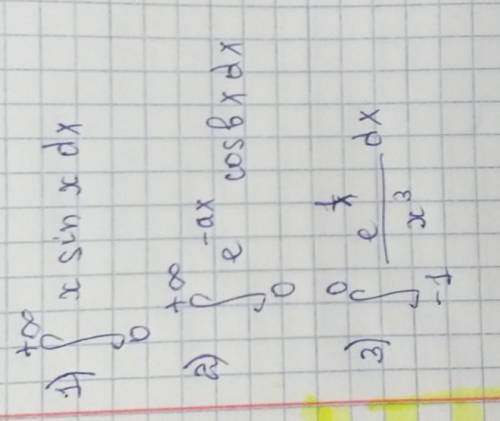 1) ∫₀^{+∞} x sin x dx
2) ∫₀^{+∞} e^{-ax} cos bx dx
3) ∫₋₁^{0} e^{1/x}/x³ dx